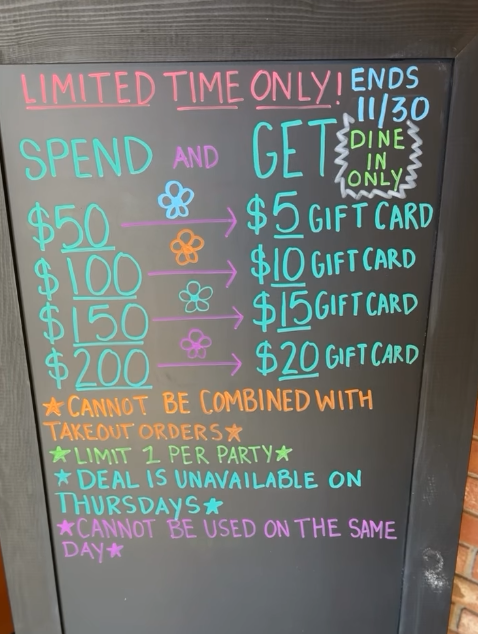 LIMITED TIME ONLY! ENDS 11/30
SPEND AND GET DINE IN ONLY
$50 $5 GIFT CARD
$100 $10 GIFT CARD
$150 $15 GIFT CARD
$200 $20 GIFT CARD
★CANNOT BE COMBINED WITH
TAKEOUT ORDERS★
★LIMIT 1 PER PARTY★
★DEAL IS UNAVAILABLE ON
THURSDAYS★
★CANNOT BE USED ON THE SAME
DAY★